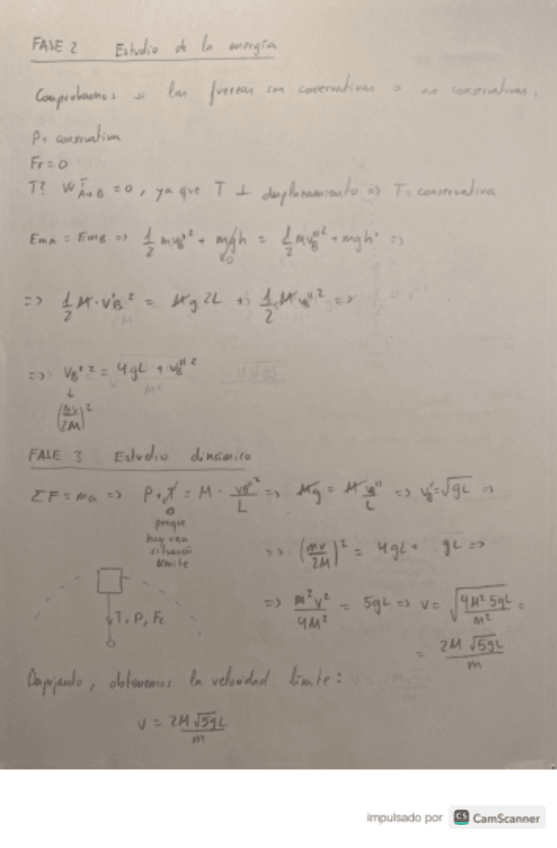 FASE 2 Estudio de la energía
Comprobamos si las fuerzas son conservativas o no conservativas.
P = conservativa
Fr = 0
T? W^T_{A→B} = 0, ya que T ⊥ desplazamiento => T = conservativa
E_{mA} = E_{mB} => 1/2 m v_B'^2 + mgh = 1/2 m v_B''^2 + mgh' =>
0
=> 1/2 M · v_B'^2 = M g 2L + 1/2 M v_B''^2 =>
=> v_B'^2 = 4gL + v_B''^2
(mv/2M)^2
FASE 3 Estudio dinámico
ΣF = ma => P + T = M · v_B''^2/L => Mg = M v_B''/L => v_B'' = √gL =>
0
porque
hay una
situación
límite
=> (mv/2M)^2 = 4gL + gL =>
=> m^2v^2/4M^2 = 5gL => v = √(4M^2 5gL/m^2) =
= 2M √5gL/m
T, P, Fc
Despejando, obtenemos la velocidad límite:
v = 2M √5gL/m
impulsado por CS CamScanner